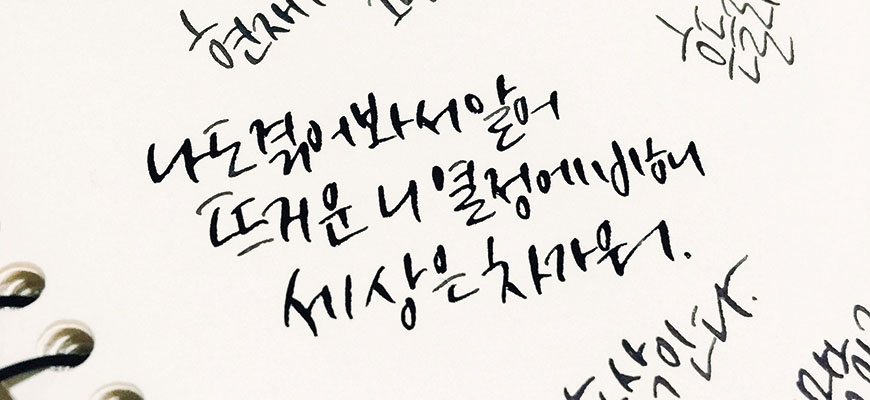 현재
흔들
나도 겪어봐서 알어
뜨거운 니 열정에 비해
세상은 차가워.
인다.